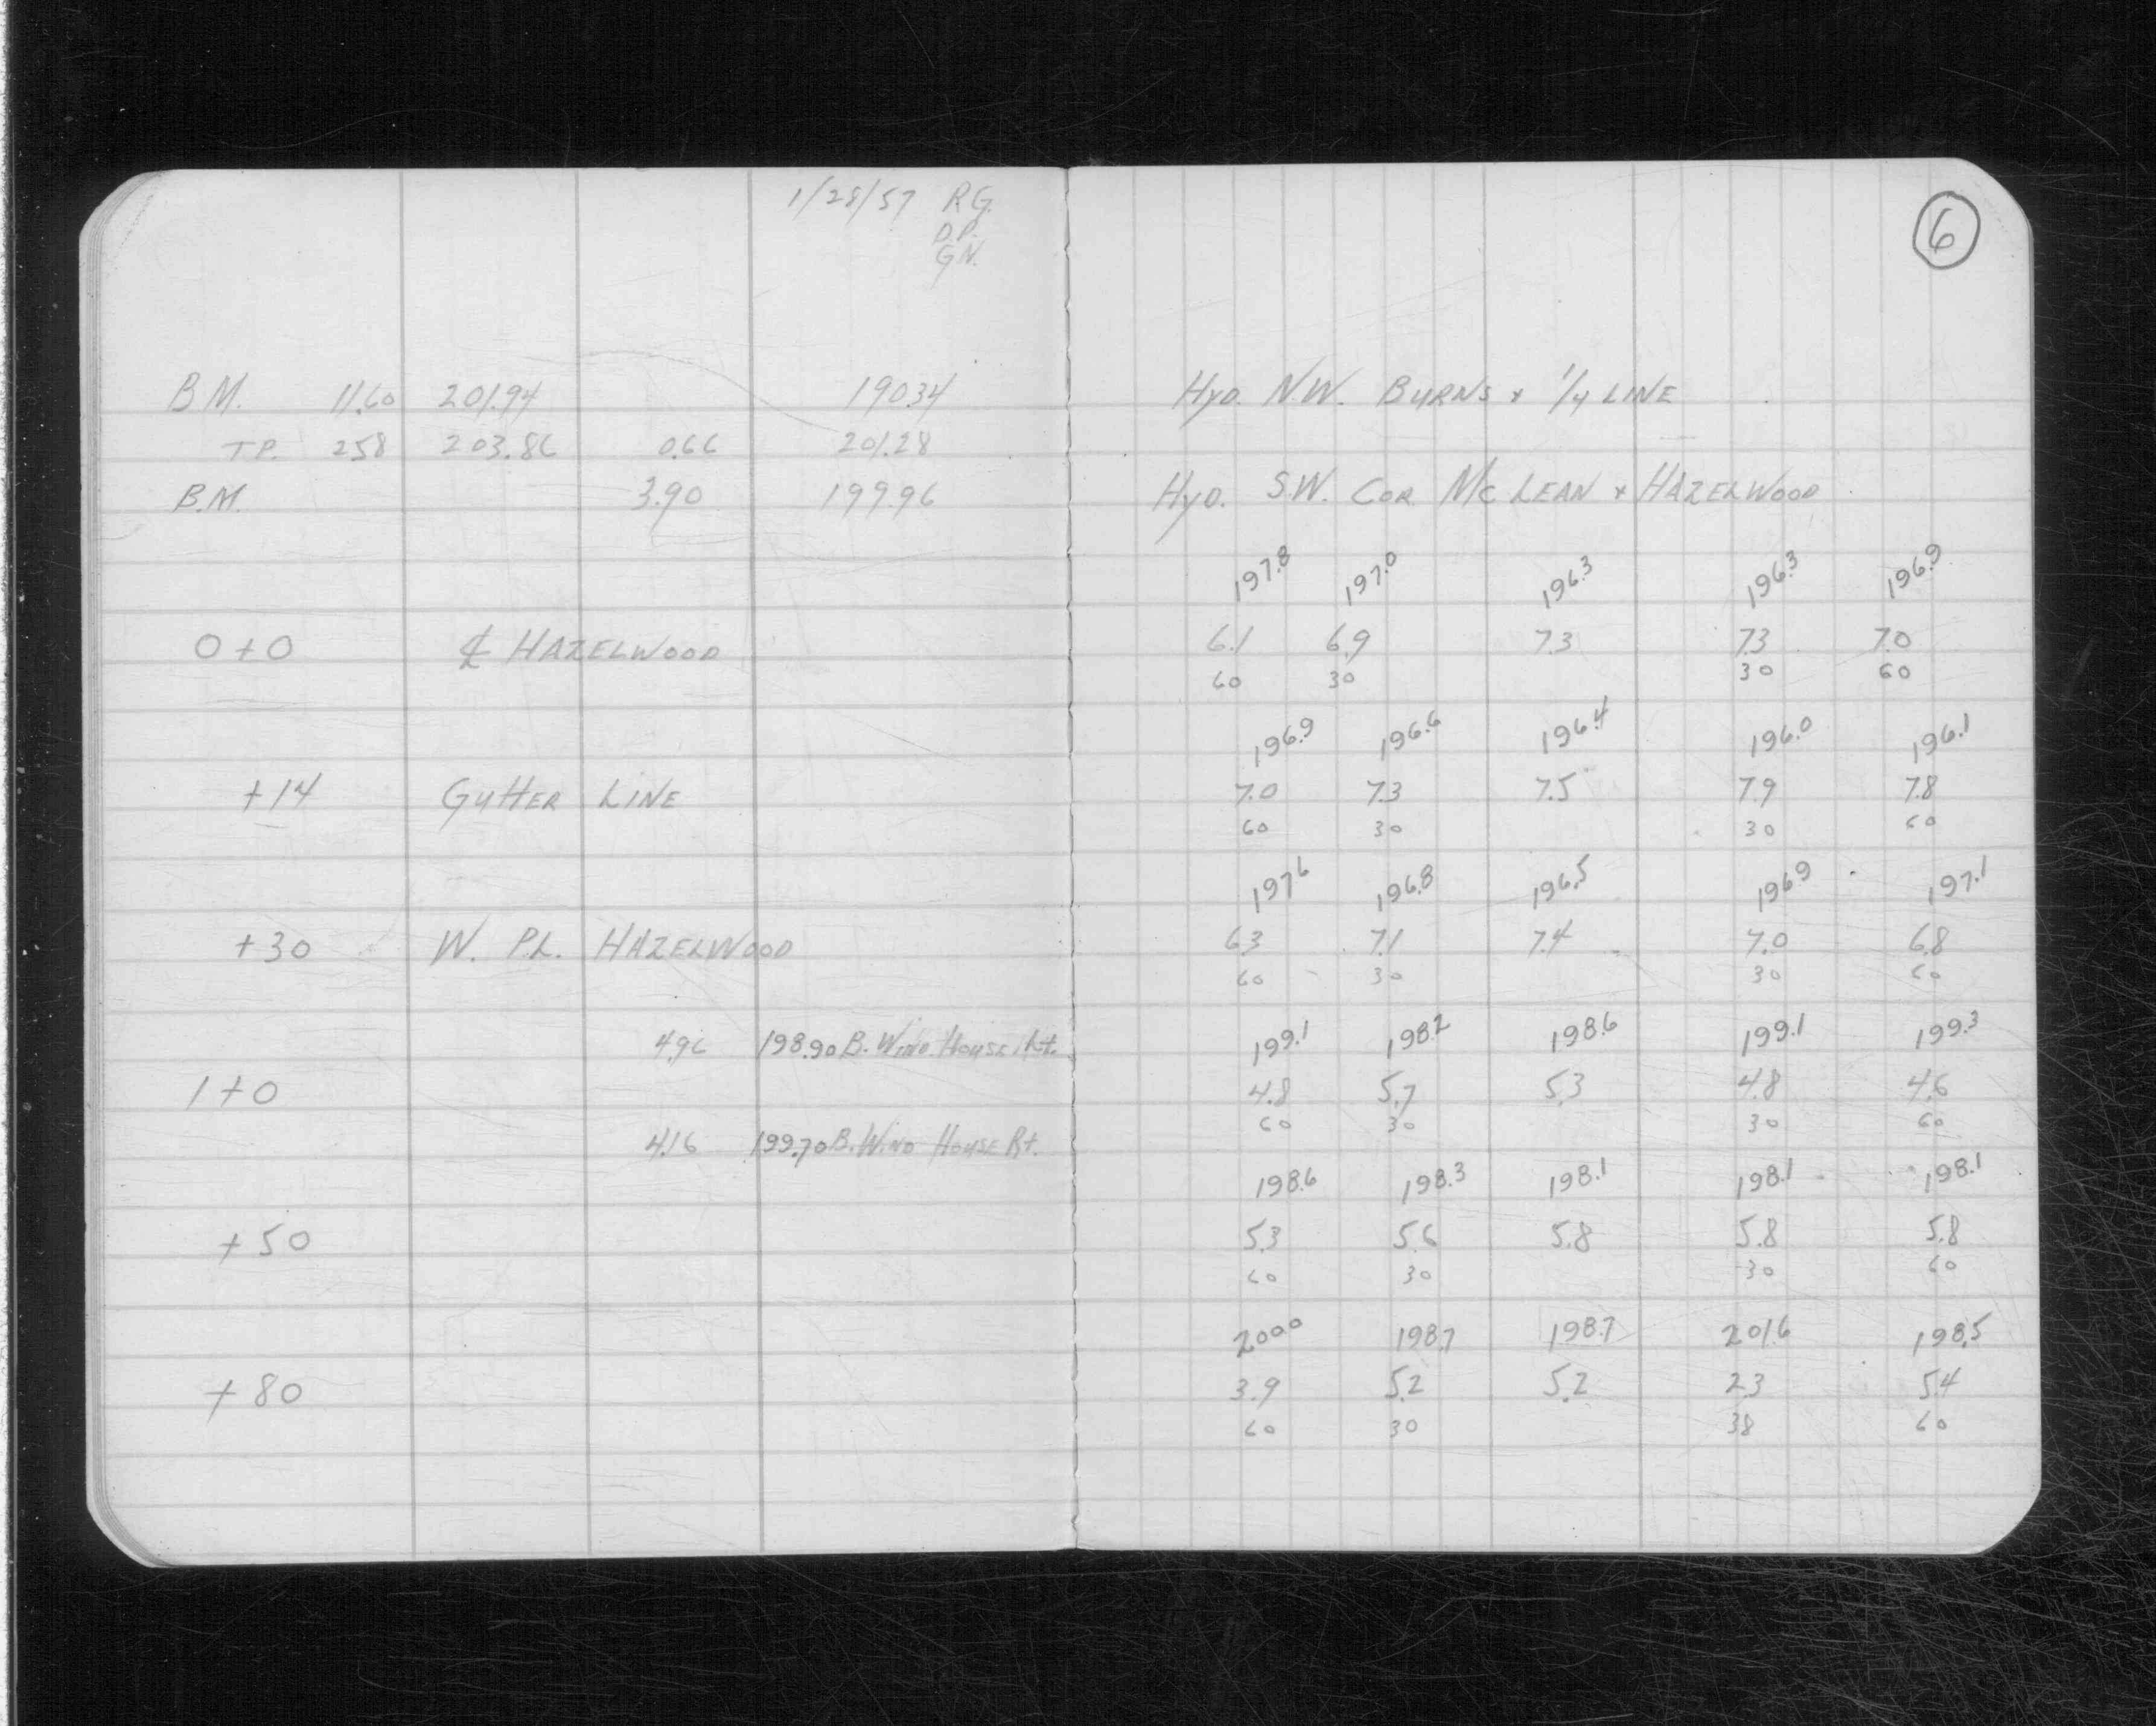 1/28/57 RG.
D.P.
G.N.
6
B.M. 11.60 201.94 190.34 Hyd. N.W. BURNS & 1/4 LINE
T.P. 2.58 203.86 0.66 201.28
B.M. 3.90 199.96 Hyd. S.W. COR. McLEAN & HAZELWOOD
197.8 197.0 196.3 196.3 196.9
0+0 ℄ HAZELWOOD 6.1 6.9 7.3 7.3 7.0
60 30 30 60
196.9 196.6 196.4 196.0 196.1
+14 GUTTER LINE 7.0 7.3 7.5 7.9 7.8
60 30 30 60
197.6 196.8 196.5 196.9 197.1
+30 W. P.L. HAZELWOOD 6.3 7.1 7.4 7.0 6.8
60 30 30 60
4.96 198.90 B. WIND. HOUSE 199.1 198.2 198.6 199.1 199.3
1+0 4.8 5.7 5.3 4.8 4.6
60 30 30 60
4.16 199.70 B. WIND HOUSE Rt.
198.6 198.3 198.1 198.1 198.1
+50 5.3 5.6 5.8 5.8 5.8
60 30 30 60
200.0 198.7 198.7 201.6 198.5
+80 3.9 5.2 5.2 2.3 5.4
60 30 38 60